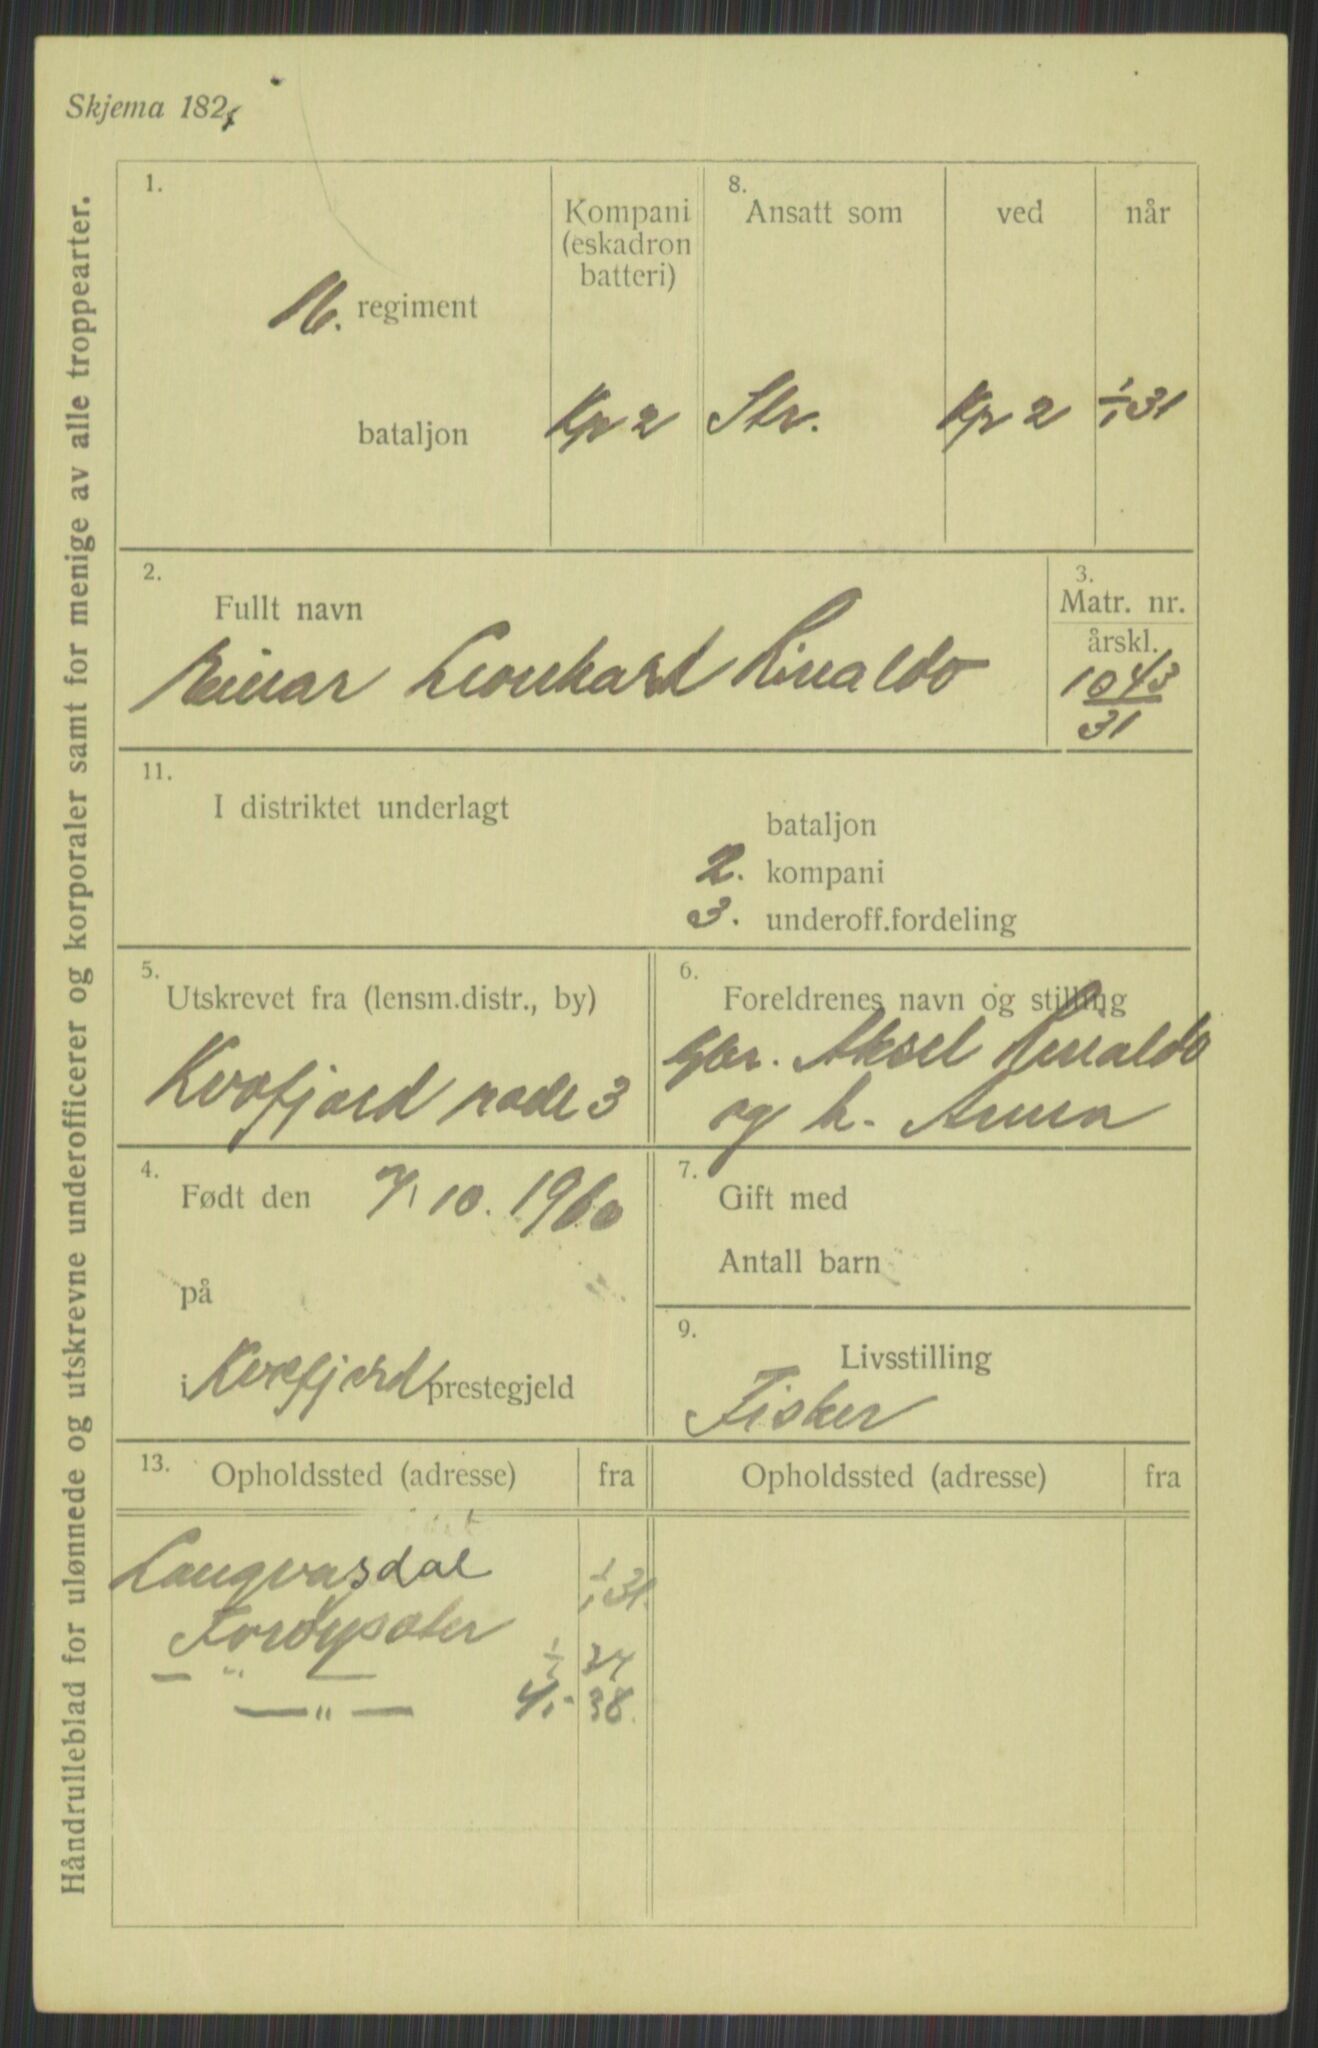 Skjema 182
Håndrulleblad for ulønnede og utskrevne underofficerer og korporaler samt for menige av alle troppearter.
1.
16. regiment
bataljon
Kompani
(eskadron
batteri)
Kp 2
8.
Ansatt som
Str.
ved
Kp 2
når
1/1 31
2.
Fullt navn
Einar Leonhard Rinaldo
3.
Matr. nr.
årskl.
1043
31
11.
I distriktet underlagt
bataljon
2. kompani
3. underoff.fordeling
5.
Utskrevet fra (lensm.distr., by)
Kvæfjord rode 3
6.
Foreldrenes navn og stilling
Gbr. Aksel Rinaldo
og h. Anna
4.
Født den 7/10. 1960
på
i Kvæfjord prestegjeld
7.
Gift med
Antall barn
9.
Livsstilling
Fisker
13.
Opholdssted (adresse)
fra
Opholdssted (adresse)
fra
Langvasdal 1/1 31.
— " —
— " — 38.